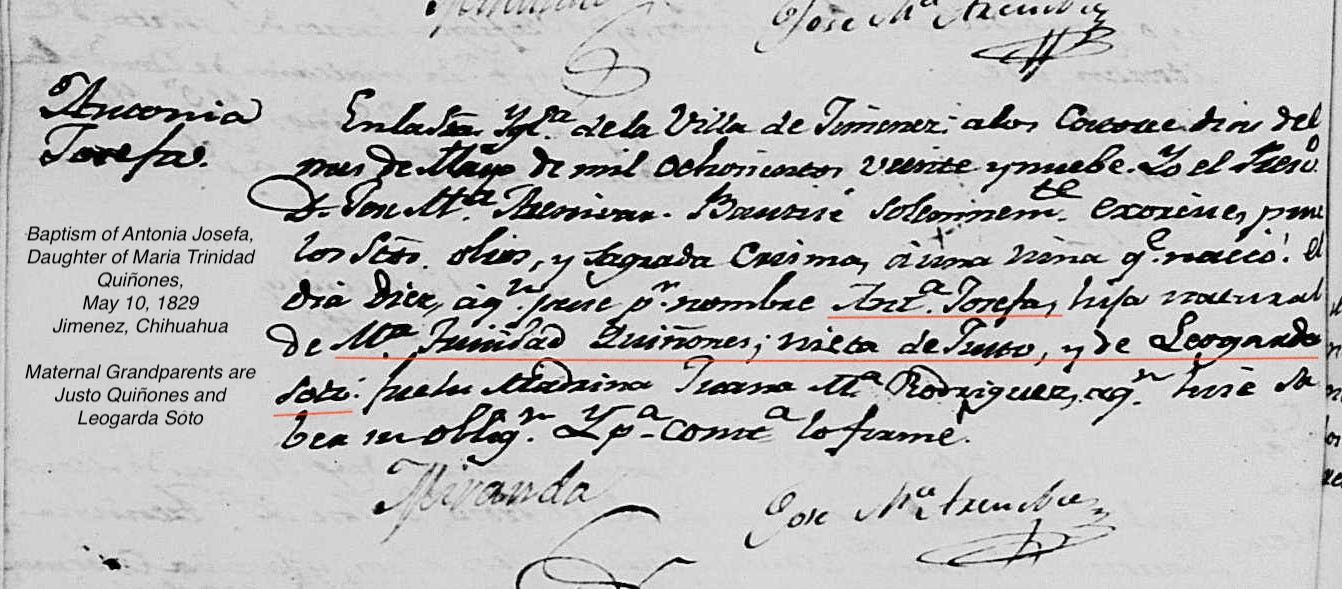 Jose Ma.
Antonia
Josefa.
En la Sta. Ygla. de la Villa de Jimenez: a los Catorce dias del
mes de Mayo de mil ochocientos veinte y nuebe. Yo el Presvo.
D. Jose Ma. Bautisé solemnemte. exorcisé, puse
los Stos. olios, y Sagrada Crisma, á una niña qe. nació el
dia diez, á qn. puse pr. nombre Anta. Josefa, hija natural
de Ma. Trinidad Quiñones; nieta de Justo, y de Leogarda
Soto: fue su Madrina Juana Ma. Rodriguez, a qn. hice sa
ber su oblign. Y pa. consta. lo firmé.
Miranda
Jose Ma.
Baptism of Antonia Josefa,
Daughter of Maria Trinidad
Quiñones,
May 10, 1829
Jimenez, Chihuahua
Maternal Grandparents are
Justo Quiñones and
Leogarda Soto